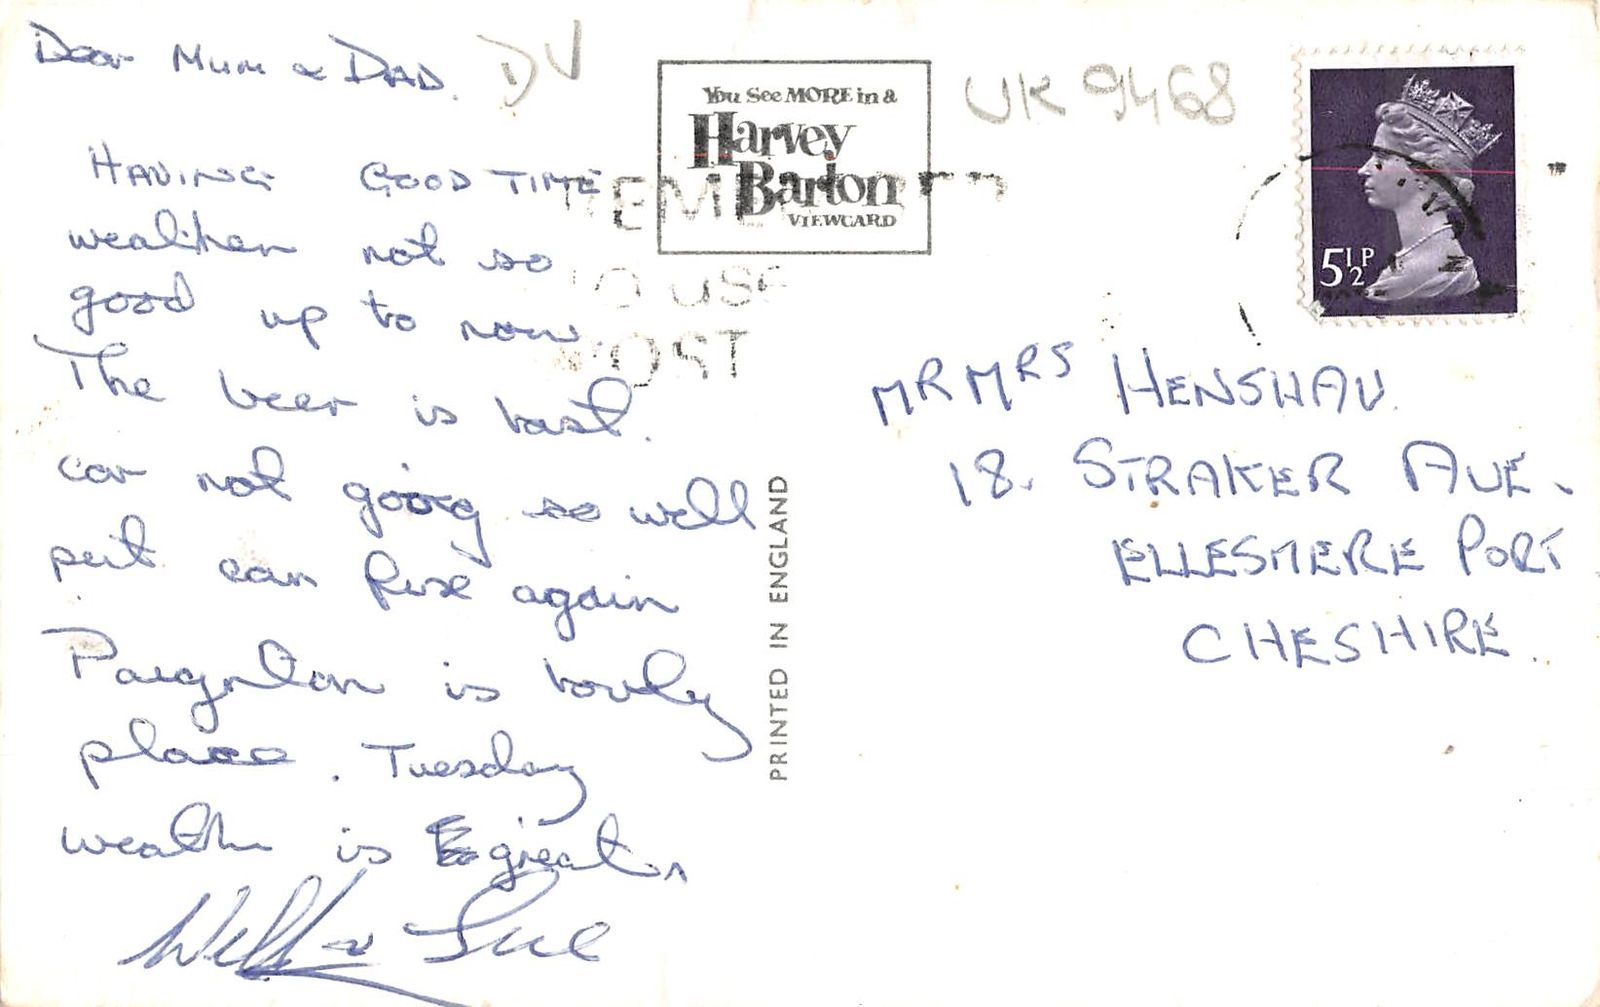 Dear Mum & DAD.
HAVING GOOD TIME
weather not so
good up to now.
The beer is
car not going so well
can fix again
Paignton is lovly
place. Tuesday
weather is great.
Will & Sue
DV
You See MORE in a
Harvey
Barton
VIEWCARD
UK 9468
5½P
USE
POST
PRINTED IN ENGLAND
MR MRS HENSHAW
18. STRAKER AVE.
ELLESMERE PORT
CHESHIRE.